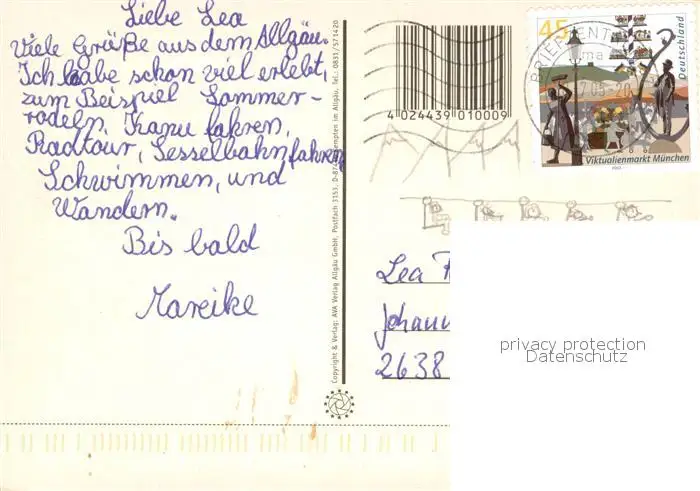 Liebe Lea
Viele Grüße aus dem Allgäu.
Ich habe schon viel erlebt,
zum Beispiel Sommer-
rodeln, Kanu fahren,
Radtour, Sesselbahnfahren
Schwimmen, und
Wandern.
Bis bald
Mareike
Copyright & Verlag: AVA Verlag Allgäu GmbH, Postfach 3153, Kempten im Allgäu, Tel.: 0831/571420
4 024439 010009
45
Deutschland
Viktualienmarkt München
BRIEFZENT
Lea
Johann
2638
privacy protection
Datenschutz